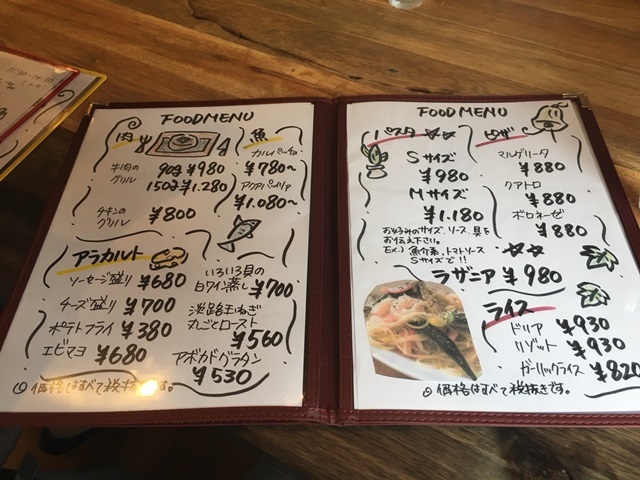 11:30~14:30
FOOD MENU
肉
牛肉の
グリル
90g ¥980
150g ¥1,280
チキンの
グリル
¥800
魚
カルパッチョ
¥780~
アクアパッツァ
¥1,080~
アラカルト
ソーセージ盛り ¥680
チーズ盛り ¥700
ポテトフライ ¥380
エビマヨ ¥680
いろいろ貝の
白ワイン蒸し ¥700
淡路玉ねぎ
丸ごとロースト
¥560
アボカドグラタン
¥530
価格はすべて税抜きです。
FOOD MENU
パスタ
Sサイズ
¥980
Mサイズ
¥1,180
お好みのサイズ、ソース、具を
お伝え下さい。
Ex.) 魚介系、トマトソース
Sサイズで!!
ラザニア ¥980
ピザ
マルゲリータ
¥880
クアトロ
¥880
ボロネーゼ
¥880
ライス
ドリア ¥930
リゾット ¥930
ガーリックライス ¥820
価格はすべて税抜きです。